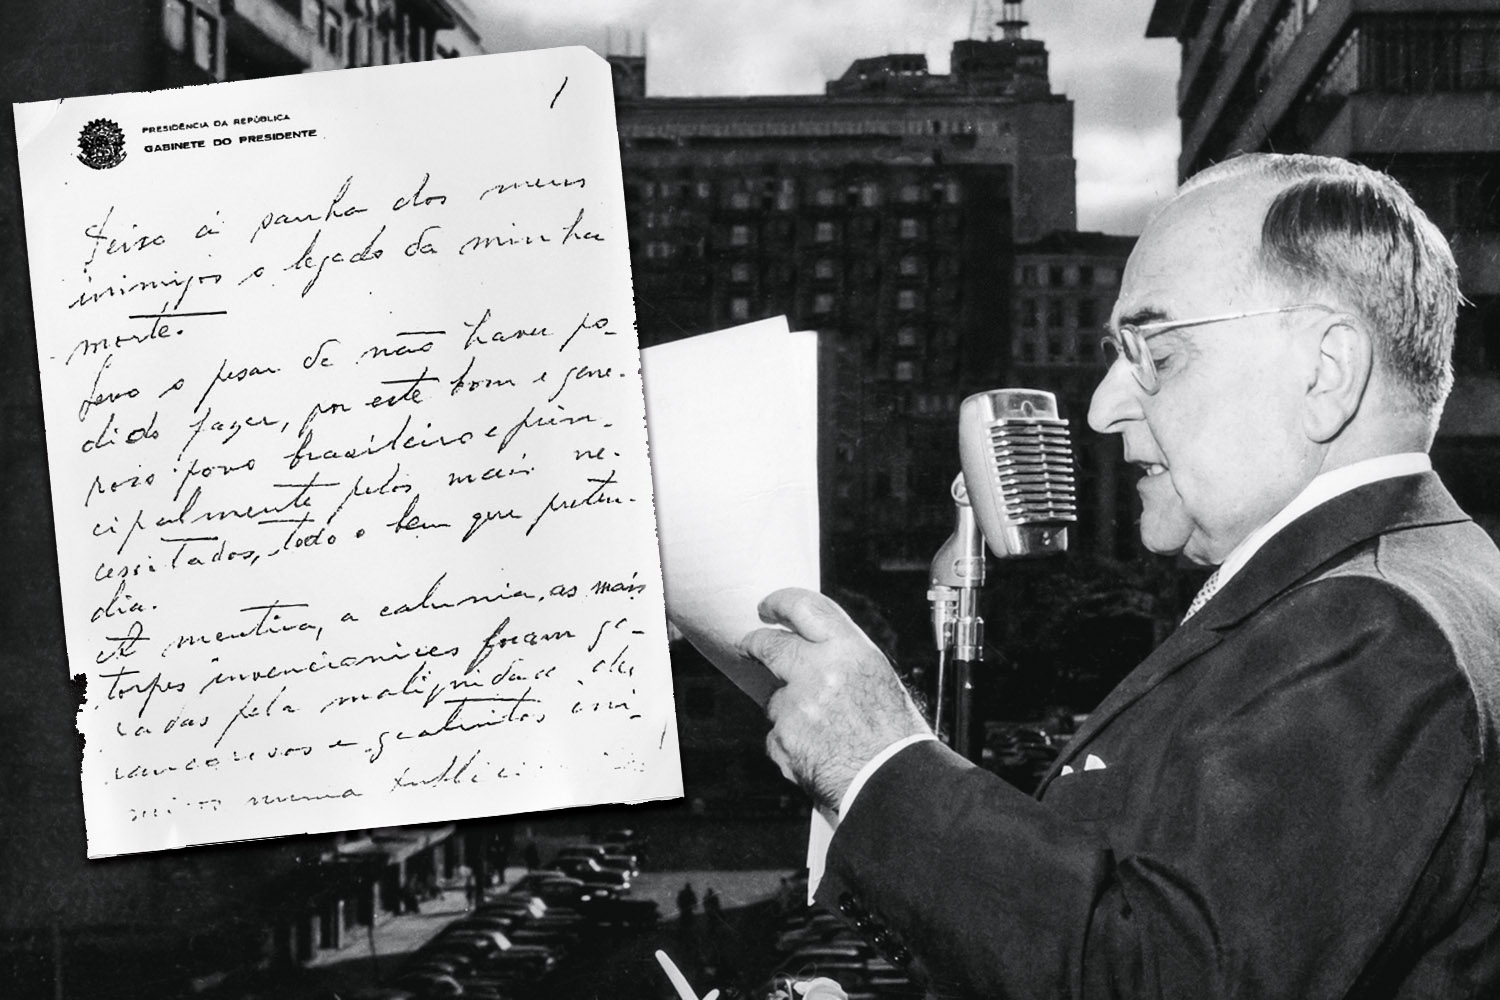 1
PRESIDÊNCIA DA REPÚBLICA
GABINETE DO PRESIDENTE
Deixo à sanha dos meus
inimigos o legado da minha
morte.
Levo o pesar de não haver po-
dido fazer, por este bom e gene-
roso povo brasileiro e prin-
cipalmente pelos mais ne-
cessitados, todo o bem que preten-
dia.
A mentira, a calunia, as mais
torpes invencionices foram ge-
radas pela malignidade de
rancorosos e gratuitos ini-
migos numa publici